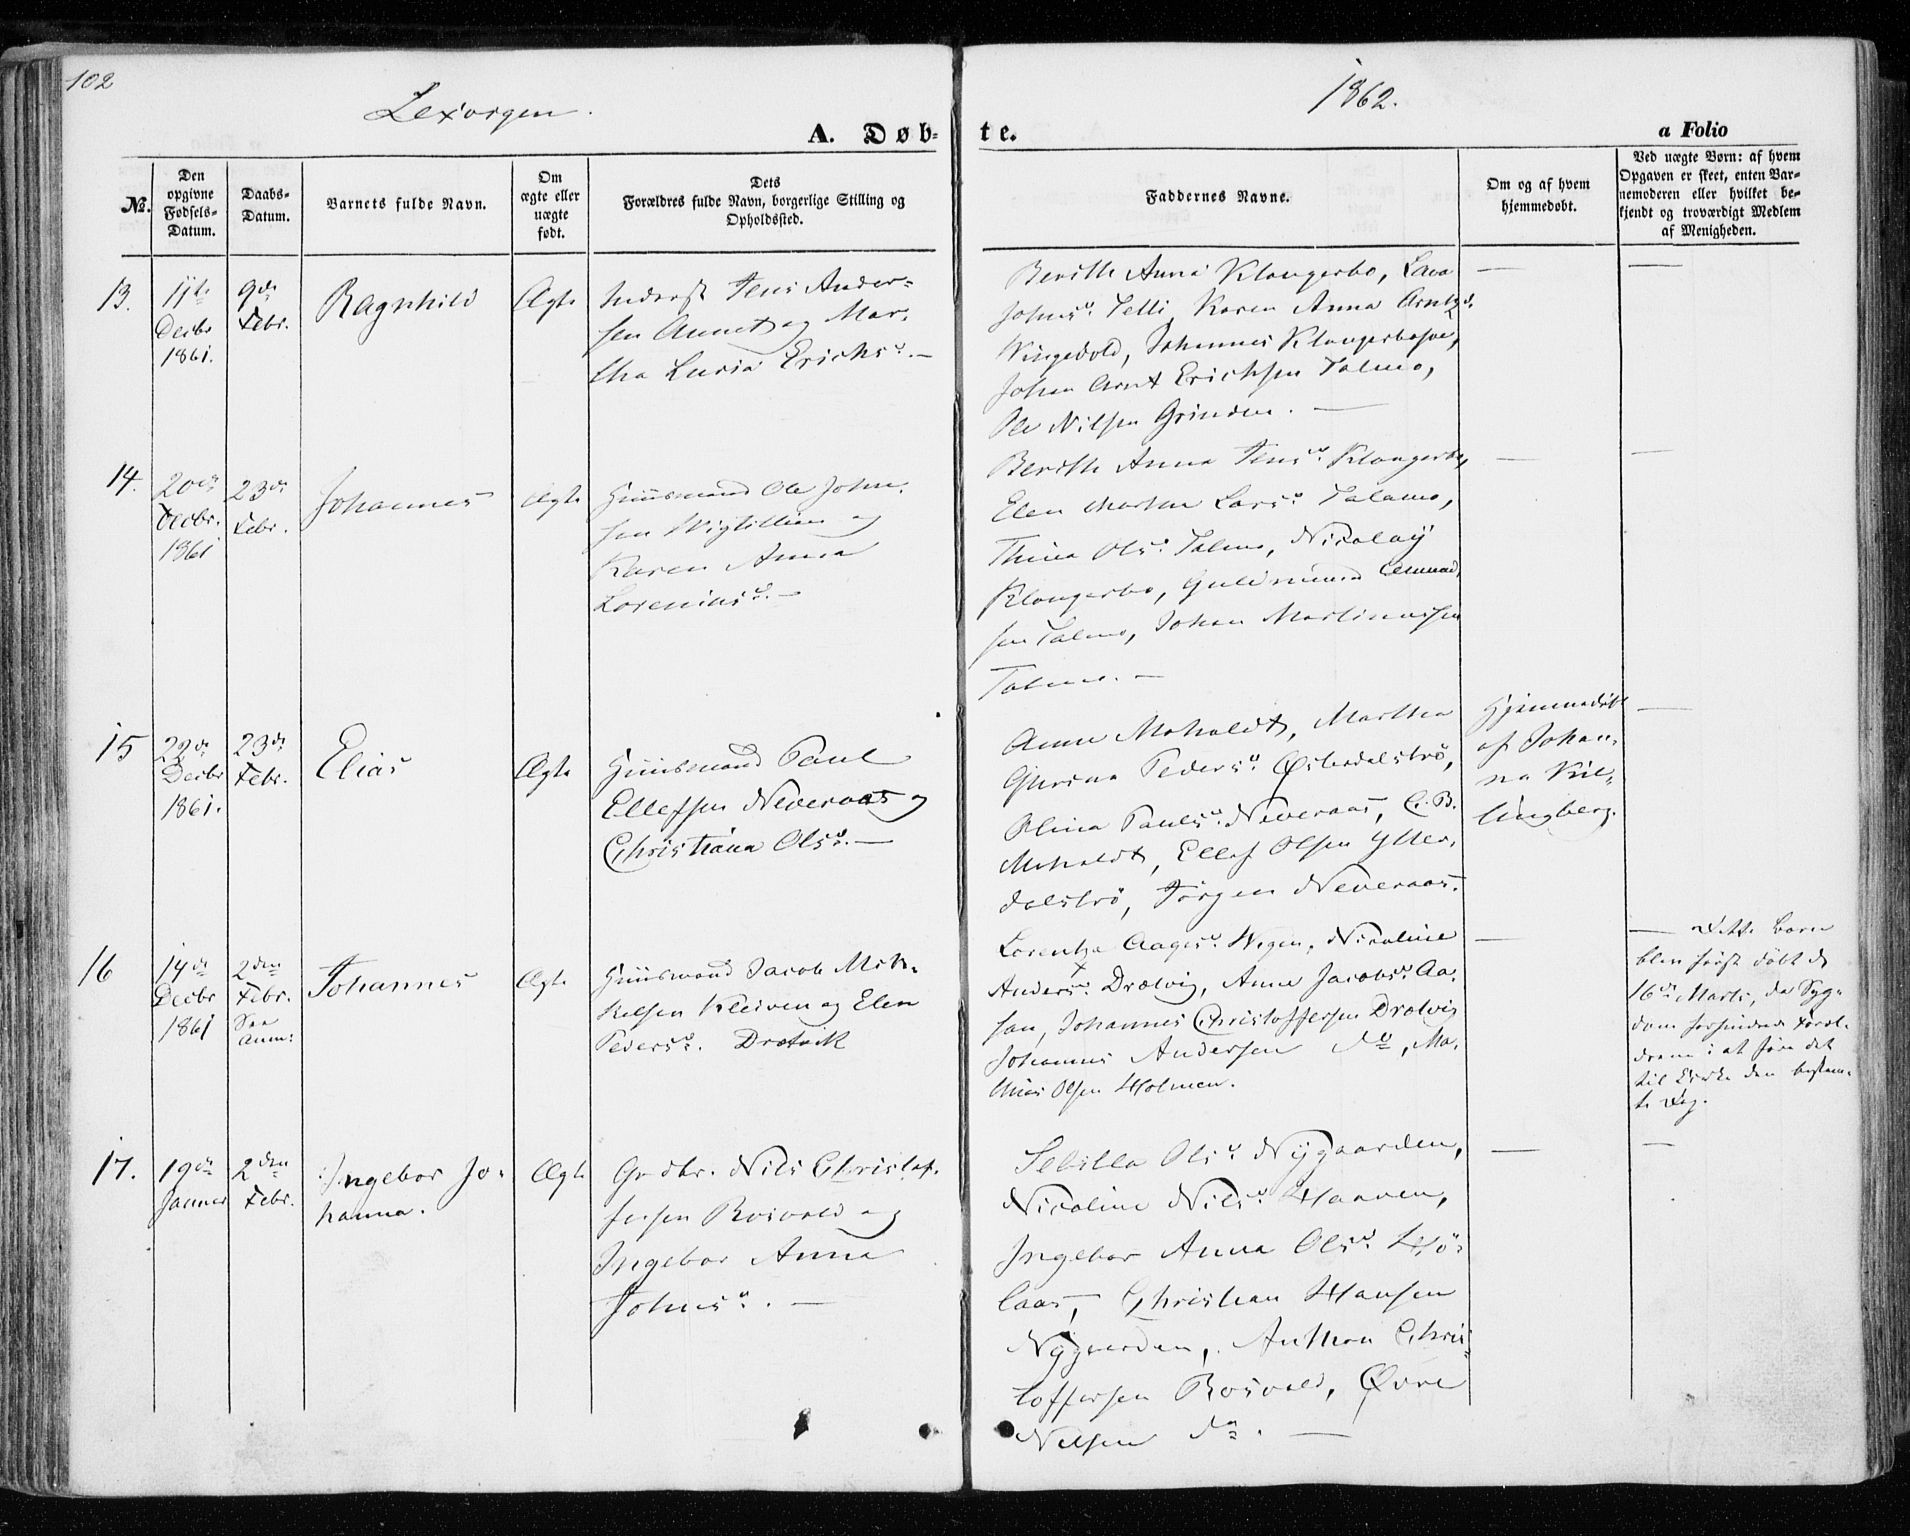 102
Lexvigen.
1862.
A. Døb-
te.
a Folio
№.
Den
opgivne
Fødsels-
Datum.
Daabs-
Datum.
Barnets fulde Navn.
Om
ægte eller
uægte
født.
Dets
Forældres fulde Navn, borgerlige Stilling og
Opholdssted.
Faddernes Navne.
Om og af hvem
hjemmedøbt.
Ved uægte Børn: af hvem
Opgaven er skeet, enten Bar-
nemoderen eller hvilket be-
kjendt og troværdigt Medlem
af Menigheden.
13.
11te
Decbr
1861.
9de
Febr.
Ragnhild
Ægte
Inderst Jens Ander-
sen Aunet og Mar-
tha Lusia Erichsd. —
Berith Anna Klougerbo, Lava
Johnsd. Telli, Karen Anna Arntzd.
Wingevold, Johannes
Johan Arnt Erichsen Talmo,
Ole Nilsen Grinden. —
—
—
14.
20de
Decbr.
1861
23de
Febr.
Johannes
Ægte
Huusmand Ole John-
sen og
Karen Anna
Loreninsd. —
Berith Anna Jensd. Klougerbo,
Elen Martha Larsd. Talamo,
Thina Olsd. Talmo, Nicolay
Klougerbo, Guldmund Amund-
sen Talmo, Johan Martinussen
Talmo. —
—
—
15
22de
Decbr
1861.
23de
Febr.
Elias
Ægte
Huusmand Paul
Ellefsen Neveraas og
Christiana Olsd. —
Anne Moholdt, Martha
Gjurina Pedersd. Østerdalstrø,
Olina Paulsd. Neveraas, C. B.
Moholdt, Ellef Olsen Ytter-
dalstrø, Jørgen Neveraas.
Hjemmedøbt
af Johan-
na Kil-
lingberg.
—
16
14de
Decbr
1861
2den
Febr.
See
Anm:
Johannes
Ægte
Huusmand Jacob Mik-
kelsen Kleiven og Elen
Pedersd. Drætvik
Lorentza Aagesd. Wegen, Nicoline
Andersd. Drætvig, Anne Jacobsd. Aa-
san, Johannes Christoffersen Drætvig
Johannes Andersen do, Ma-
thias Olsen Holmen.
—
— Dette Barn
blev først døbt d.
16de Marts, da Syg-
dom forhindrede Foræl-
drene i at føre det
til Kirke den bestem-
te Dag.
17.
19de
Januar
2den
Febr.
Ingebor Jo-
hanna.
Ægte
Grdbr. Nils Christof-
fersen Rosvold og
Ingebor Anna
Johnsd. —
Sebilla Olsd. Nygaarden,
Nicoline Nilsd. Haaven,
Ingebor Anna Olsd. Hø-
laas, Christian Hansen
Nygaarden, Anthon Chris-
toffersen Rosvold, Øvre
Nilsen do. —
—
—